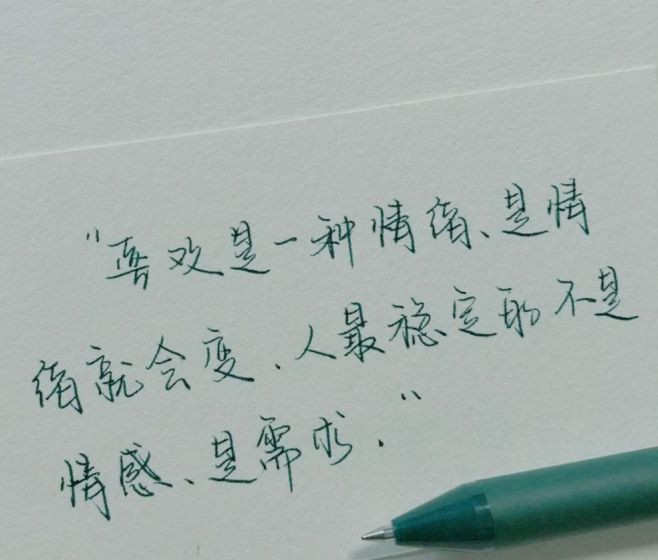 "喜欢是一种情绪、是情
绪就会变、人最稳定的不是
情感、是需求."